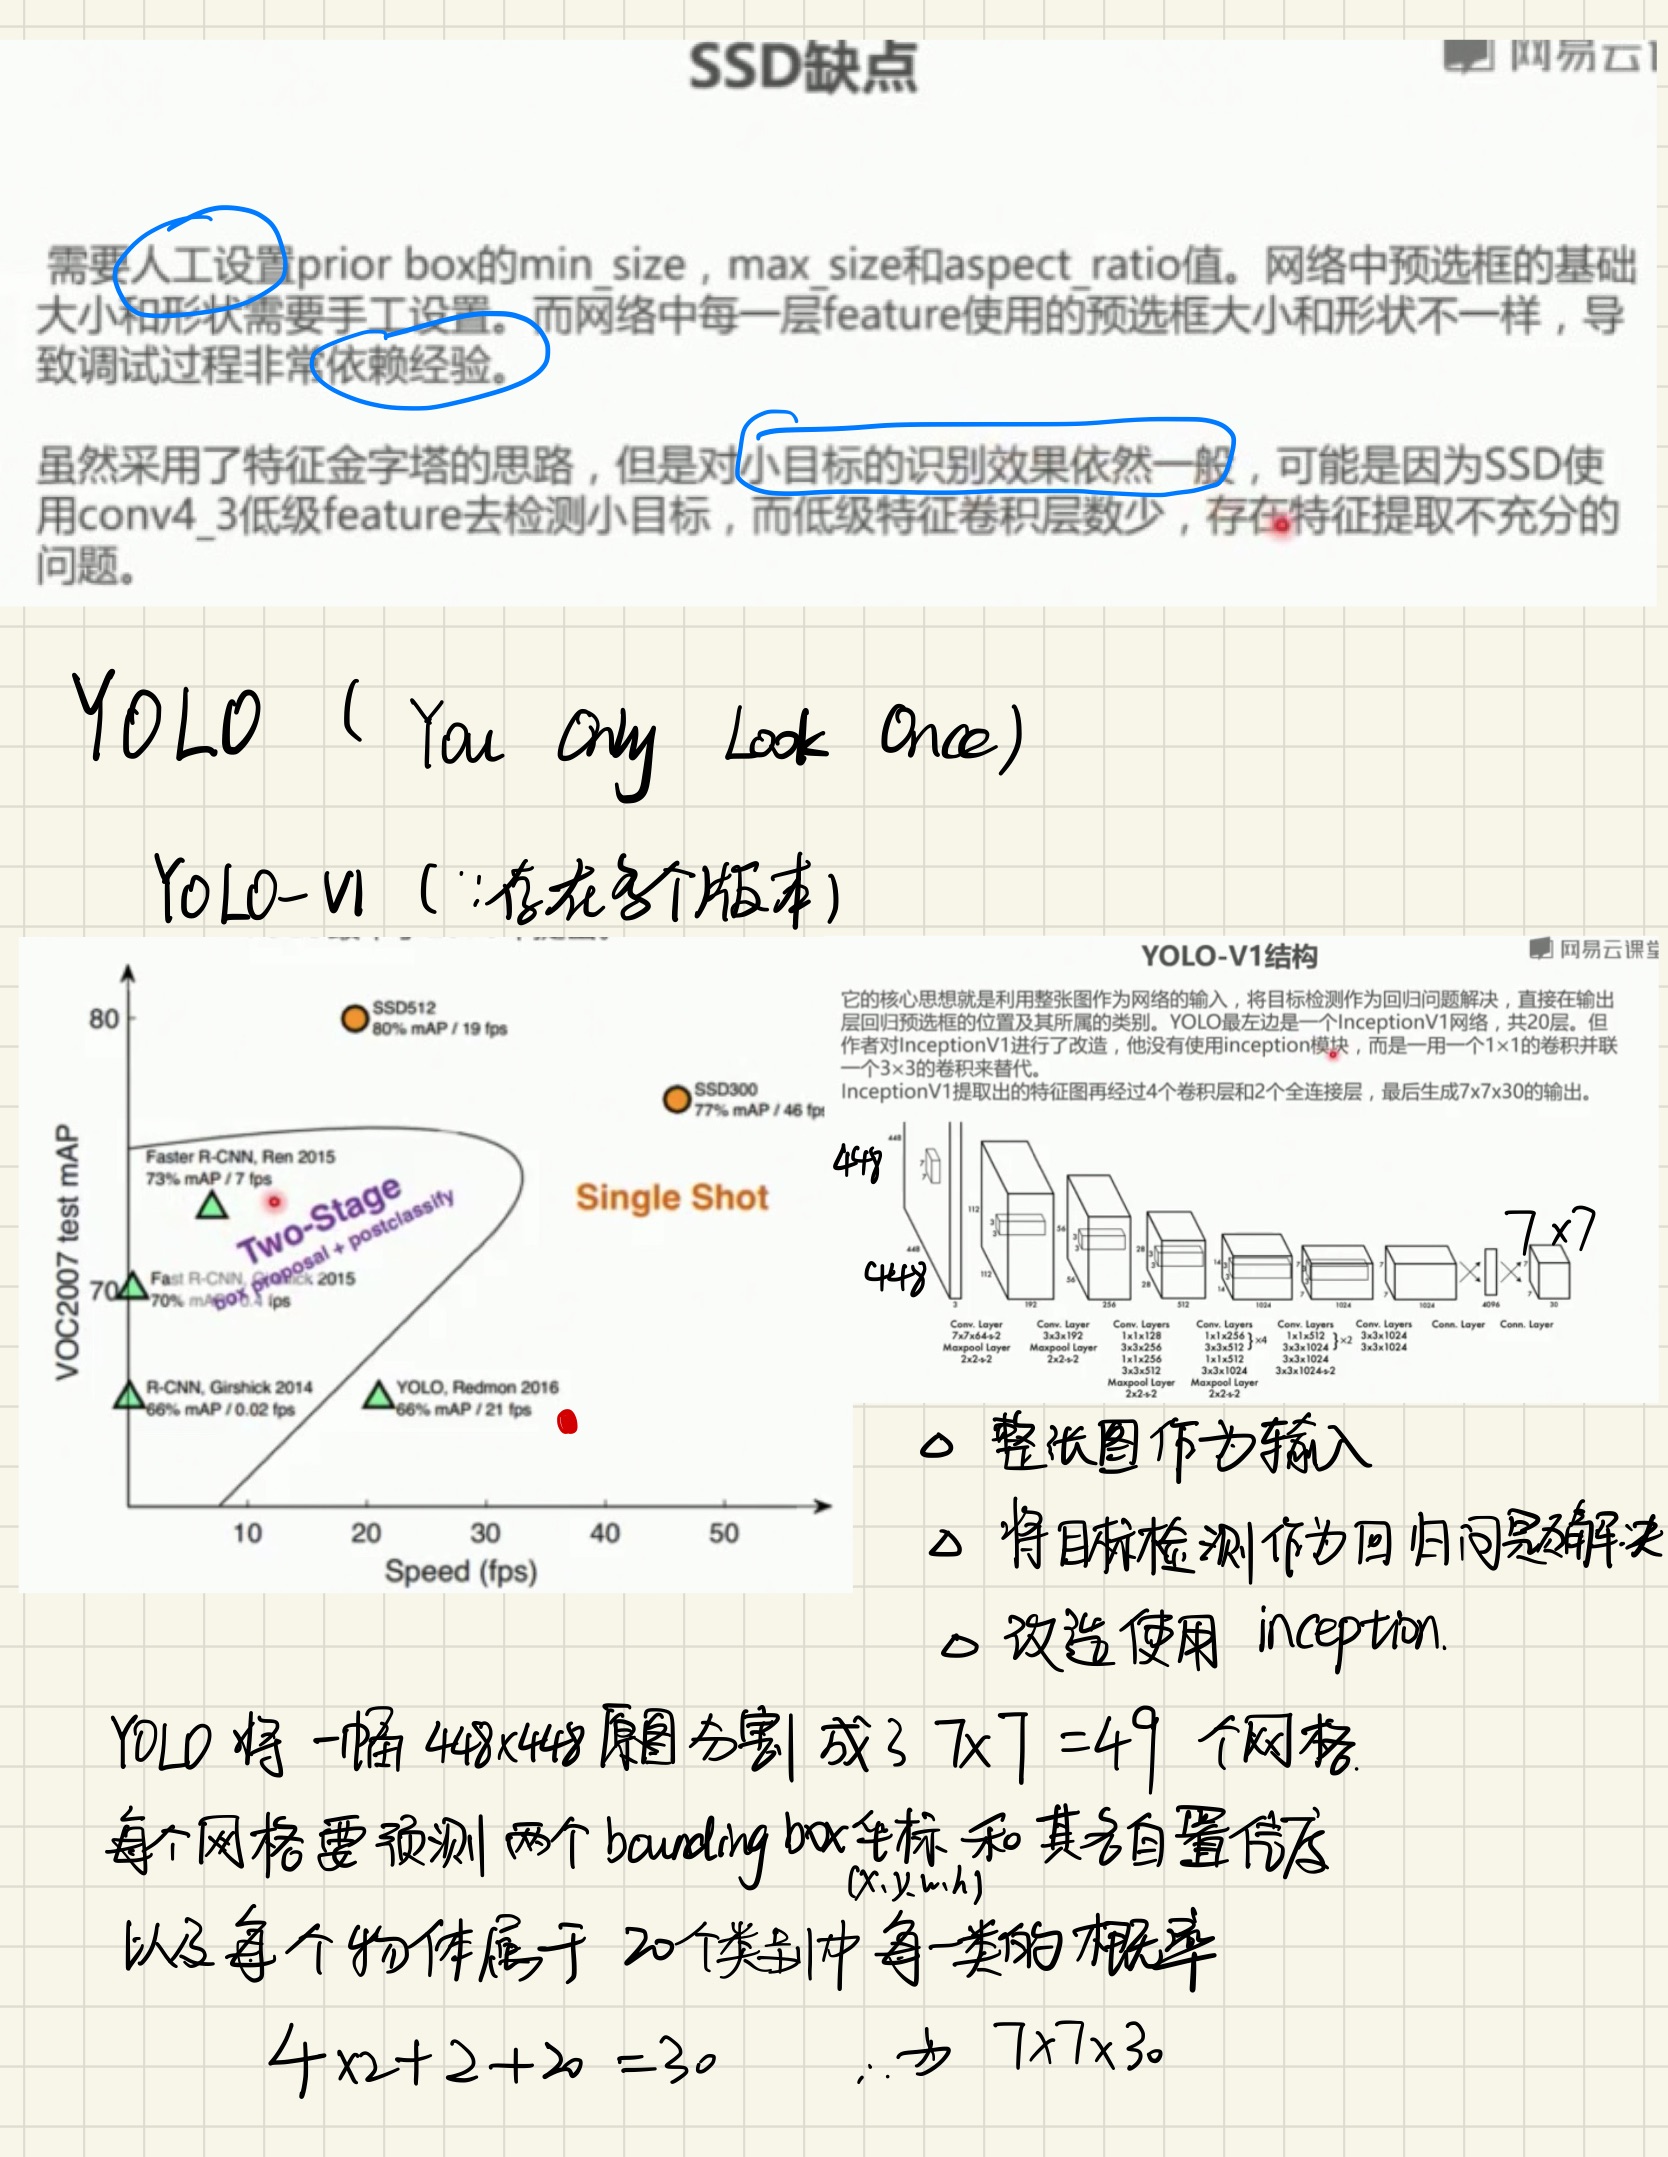 SSD缺点
网易云
需要人工设置prior box的min_size，max_size和aspect_ratio值。网络中预选框的基础
大小和形状需要手工设置。而网络中每一层feature使用的预选框大小和形状不一样，导
致调试过程非常依赖经验。
虽然采用了特征金字塔的思路，但是对小目标的识别效果依然一般，可能是因为SSD使
用conv4_3低级feature去检测小目标，而低级特征卷积层数少，存在特征提取不充分的
问题。
YOLO (You Only Look Once)
YOLO-V1 (∵存在多个版本)
80
SSD512
80% mAP / 19 fps
SSD300
77% mAP / 46 fps
VOC2007 test mAP
Faster R-CNN, Ren 2015
73% mAP / 7 fps
Two-Stage
box proposal + postclassify
Single Shot
70
Fast R-CNN, Girshick 2015
70% mAP / 0.4 fps
R-CNN, Girshick 2014
66% mAP / 0.02 fps
YOLO, Redmon 2016
66% mAP / 21 fps
10 20 30 40 50
Speed (fps)
YOLO-V1结构
网易云课堂
它的核心思想就是利用整张图作为网络的输入，将目标检测作为回归问题解决，直接在输出
层回归预选框的位置及其所属的类别。YOLO最左边是一个InceptionV1网络，共20层。但
作者对InceptionV1进行了改造，他没有使用inception模块，而是一用一个1×1的卷积并联
一个3×3的卷积来替代。
InceptionV1提取出的特征图再经过4个卷积层和2个全连接层，最后生成7x7x30的输出。
448
448
7×7
448
448
7
7
112
112
3
3
56
56
3
3
28
28
3
3
14
14
3
3
7
7
3
3
7
7
7
7
3 192 256 512 1024 1024 1024 4096 30
Conv. Layer
7x7x64-s-2
Maxpool Layer
2x2-s-2
Conv. Layer
3x3x192
Maxpool Layer
2x2-s-2
Conv. Layers
1x1x128
3x3x256
1x1x256
3x3x512
Maxpool Layer
2x2-s-2
Conv. Layers
1x1x256
3x3x512 }×4
1x1x512
3x3x1024
Maxpool Layer
2x2-s-2
Conv. Layers
1x1x512
3x3x1024 }×2
3x3x1024
3x3x1024-s-2
Conv. Layers
3x3x1024
3x3x1024
Conn. Layer
Conn. Layer
△ 整张图作为输入
△ 将目标检测作为回归问题解决
△ 改造使用 inception.
YOLO 将一幅 448×448 原图分割成了 7×7 =49 个网格.
每个网格要预测两个 bounding box 坐标和其各自置信度
(x,y,w,h)
以及每个物体属于 20个类别中每一类的概率
4×2+2+20 =30 ∴为 7×7×30